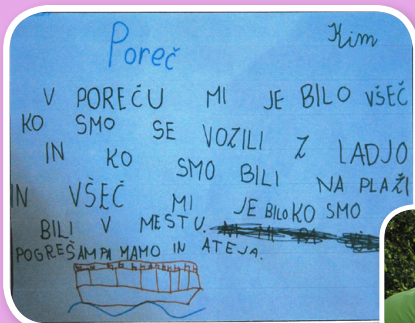 Poreč
Kim
V POREČU MI JE BILO VŠEČ
KO SMO SE VOZILI Z LADJO
IN KO SMO BILI NA PLAŽI
IN VŠEČ MI JE BILO KO SMO
BILI V MESTU.
POGREŠAM PA MAMO IN ATEJA.